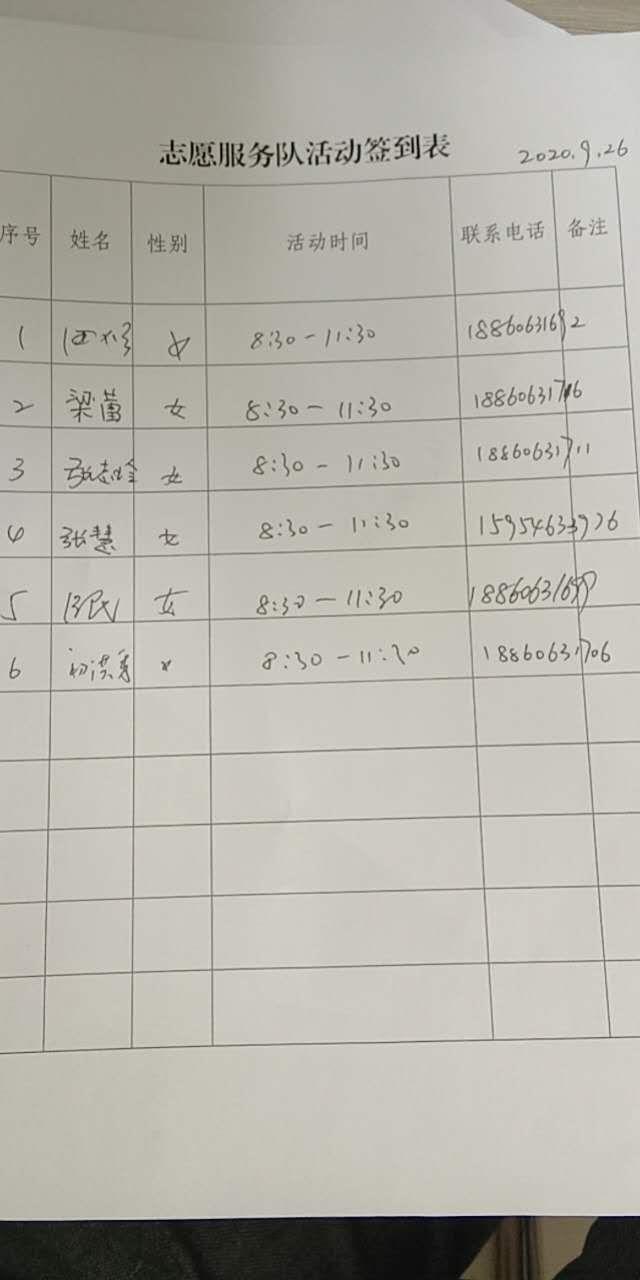 志愿服务队活动签到表 2020.9.26
序号 姓名 性别 活动时间 联系电话 备注
1 女 8:30-11:30
2 梁蕾 女 8:30-11:30 18860631716
3 女 8:30-11:30 18860631711
4 张慧 女 8:30-11:30
5 女 8:30-11:30
6 8:30-11:30 18860631706